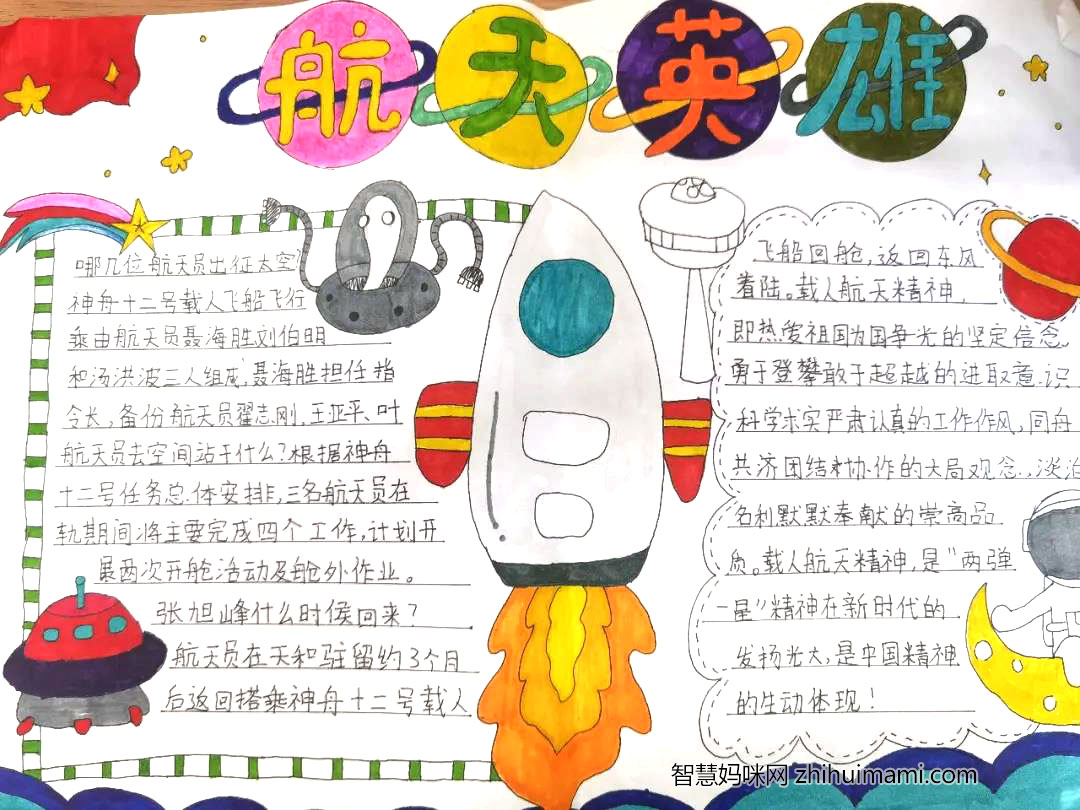 航天英雄
哪几位航天员出征太空?
神舟十二号载人飞船飞行
乘由航天员聂海胜刘伯明
和汤洪波三人组成,聂海胜担任指
令长,备份航天员翟志刚,王亚平、叶
航天员去空间站干什么?根据神舟
十二号任务总体安排,三名航天员在
轨期间将主要完成四个工作,计划开
展两次开舱活动及舱外作业。
张旭峰什么时侯回来?
航天员在天和驻留约3个月
后返回搭乘神舟十二号载人
飞船回舱,返回东风
着陆。载人航天精神,
即热爱祖国为国争光的坚定信念
勇于登攀敢于超越的进取意识
科学求实严肃认真的工作作风,同舟
共济团结协作的大局观念,淡泊
名利默默奉献的崇高品
质。载人航天精神,是"两弹
一星"精神在新时代的
发扬光大,是中国精神
的生动体现!
智慧妈咪网 zhihuimami.com